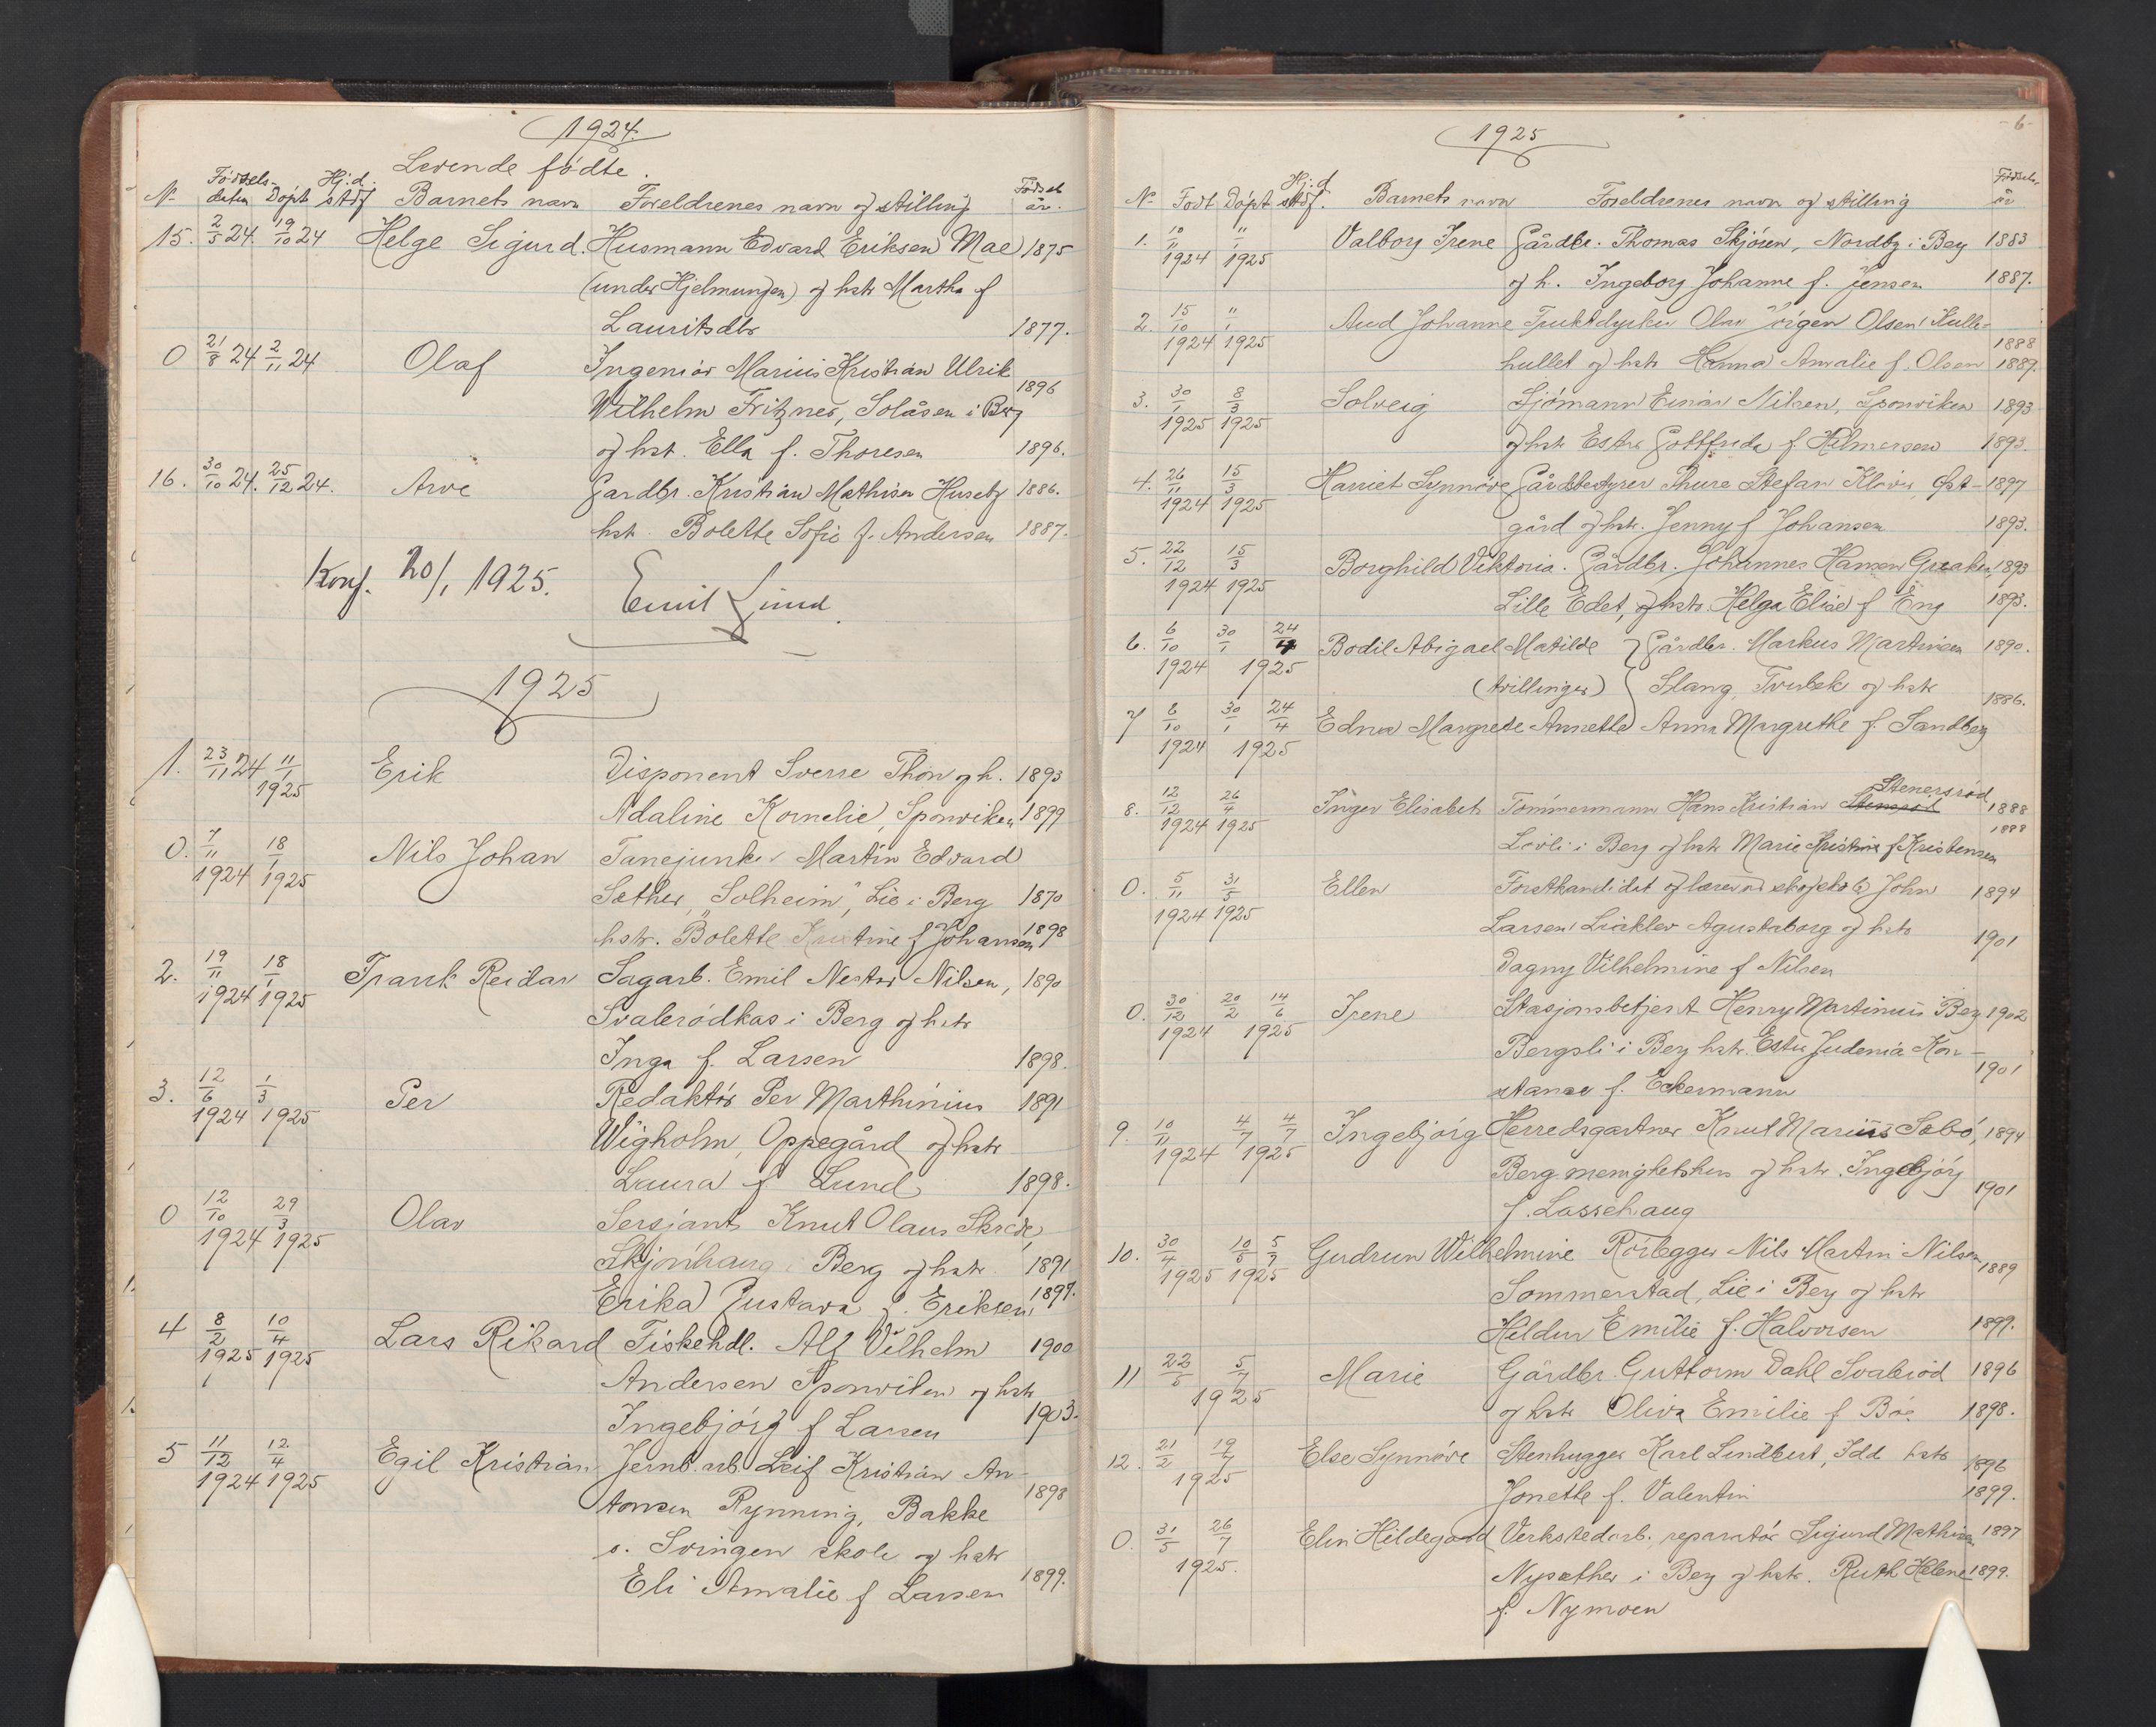 1924.
Levende födte.
No Födsels-daten Döpt Hj:d. stdf Barnets navn Foreldrenes navn og stilling Födsels år.
15. 2/5 24. 19/10 24 Helge Sigurd. Husmann Edvard Eriksen Mae 1875
(under Hjelmungen) og hstr Martha f
Lauritsdtr 1877.
0 21/8 24 2/11 24 Olaf Ingeniör Marius Kristian Ulrik
Wilhelm Fritzner, Solåsen i Berg 1896
og hst. Ella f. Thoresen 1896.
16. 30/10 24. 25/12 24. Arve Gardbr. Kristian Mathisen Huseby 1886.
hst. Bolette Sofie f. Andersen 1887.
Konf. 20/1 1925. Emil Lund.
1925
1. 23/11 24 11/1 1925 Erik Disponent Sverre Thon og h. 1893
Adaline Kornelie, Sponviken 1899
0. 7/11 1924 18/1 1925 Nils Johan Martin Edvard
Sæther, "Solheim", Lie i Berg 1870
hstr. Bolette Kristine f Johansen 1898
2. 19/11 1924 18/1 1925 Frank Reidar Sagarb. Emil Nestor Nilsen, 1890
Svalerödkas i Berg og hstr
Inga f. Larsen 1898.
3. 12/6 1924 1/3 1925 Per Redaktör Per Marthinius 1891
Wigholm, Oppegård og hstr
Laura f Lund 1898.
0 12/10 1924 29/3 1925 Olav Sersjant Knut Olaus
i Berg og hstr. 1891
Erika Gustava f. Eriksen 1897.
4 8/2 1925 10/4 1925 Lars Rikard Fiskehdl. Alf Vilhelm 1900
Andersen Sponviken og hstr
Ingebjörg f Larsen 1903.
5 11/12 1924 12/4 1925 Egil Kristian Jernb.arb. Leif Kristian An-
tonsen Rynning, Bakke 1898
v. Svingen skole og hstr
Eli Amalie f Larsen 1899.
-6-
1925
No Födt Döpt Hj:d stdf. Barnets navn Foreldrenes navn og stilling Födsels. år
1. 10/11 1924 11/1 1925 Valborg Irene Gårdbr. Thomas Skjören, Nordby i Berg 1883
og h. Ingeborg Johanne f. Jensen 1887.
2. 15/10 1924 11/1 1925 Aud Johanne Fruktdyrker Olav Jörgen Olsen Kulle-
hullet og hstr Hanna Amalie f. Olsen 1888 1889.
3. 30/1 1925 8/3 1925 Solveig Sjömann Einar Nilsen, Sponviken 1893
og hstr Ester Gottfrida f. Hilmersen 1893.
4. 26/11 1924 15/3 1925 Harriet Synnöve Gårdbestyrer Thure Stefan Öst- 1897
gård og hstr. Jenny f Johansen 1893.
5. 22/12 1924 15/3 1925 Borghild Viktoria. Gårdbr. Johannes Hansen Greaker, 1893
Lille Edet, og hstr. Helga Elise f Eng 1893.
6. 6/10 1924 30/1 24/4 1925 Bodil Abigael Matilde Gårdbr. Markus Martinsen 1890.
(tvillinger) Slang, Torbek og hstr
7 6/10 1924 30/1 24/4 1925 Edna Margrete Annette Anna Margrethe f. Sandberg 1886.
8. 12/12 1924 26/4 1925 Inger Elisabet Tömmermann Hans Kristian Stenersröd 1888
Lövli i Berg og hstr Marie Kristine f Kristensen 1888
0. 5/11 1924 31/5 1925 Ellen Forstkandidat og lærer ved skogskole John 1894
Larsen Liaklev Agustaborg og hstr
Dagny Vilhelmine f Nilsen 1901
0. 30/12 1924 20/2 14/6 1925 Irene Stasjonsbetjent Henry Martinius Berg 1902
Bergsli i Berg hstr. Ester Judenia Kon-
stanse f. Eckermann 1901
9. 10/11 1924 4/7 4/7 1925 Ingebjörg Herredsgartner Knut Marius Sæbö, 1894
Berg menighetshus og hstr. Ingebjörg
f. Lassehaug 1901
10. 30/4 1925 10/5 5/7 1925 Gudrun Wilhelmine Rörlegger Nils Martin Nilsen 1889
Sommerstad, Lie i Berg og hstr
Hildur Emilie f. Halvorsen 1899.
11 22/5 5/7 1925 Marie Gårdbr. Guttorm Dahl Svaleröd 1896
og hstr Oliva Emilie f Böe 1898.
12. 21/2 19/7 1925 Else Synnöve Stenhugger Karl Lindbert, Idd hstr 1896
Jonette f. Valentin 1899.
0. 31/5 26/7 1925. Elin Hildegard Verkstedarb. reparatör Sigurd Mathisen 1897
Nysæther i Berg og hstr. Ruth Helene 1899.
f. Nymoen